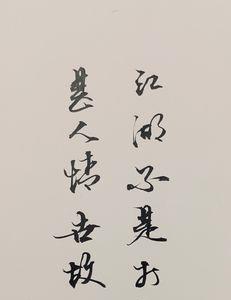 江湖不是打
人情世故